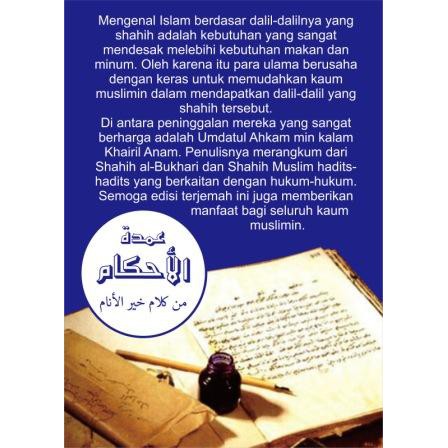 Mengenal Islam berdasar dalil-dalilnya yang
shahih adalah kebutuhan yang sangat
mendesak melebihi kebutuhan makan dan
minum. Oleh karena itu para ulama berusaha
dengan keras untuk memudahkan kaum
muslimin dalam mendapatkan dalil-dalil yang
shahih tersebut.
Di antara peninggalan mereka yang sangat
berharga adalah Umdatul Ahkam min kalam
Khairil Anam. Penulisnya merangkum dari
Shahih al-Bukhari dan Shahih Muslim hadits-
hadits yang berkaitan dengan hukum-hukum.
Semoga edisi terjemah ini juga memberikan
manfaat bagi seluruh kaum
muslimin.
عمدة
الأحكام
من كلام خير الأنام